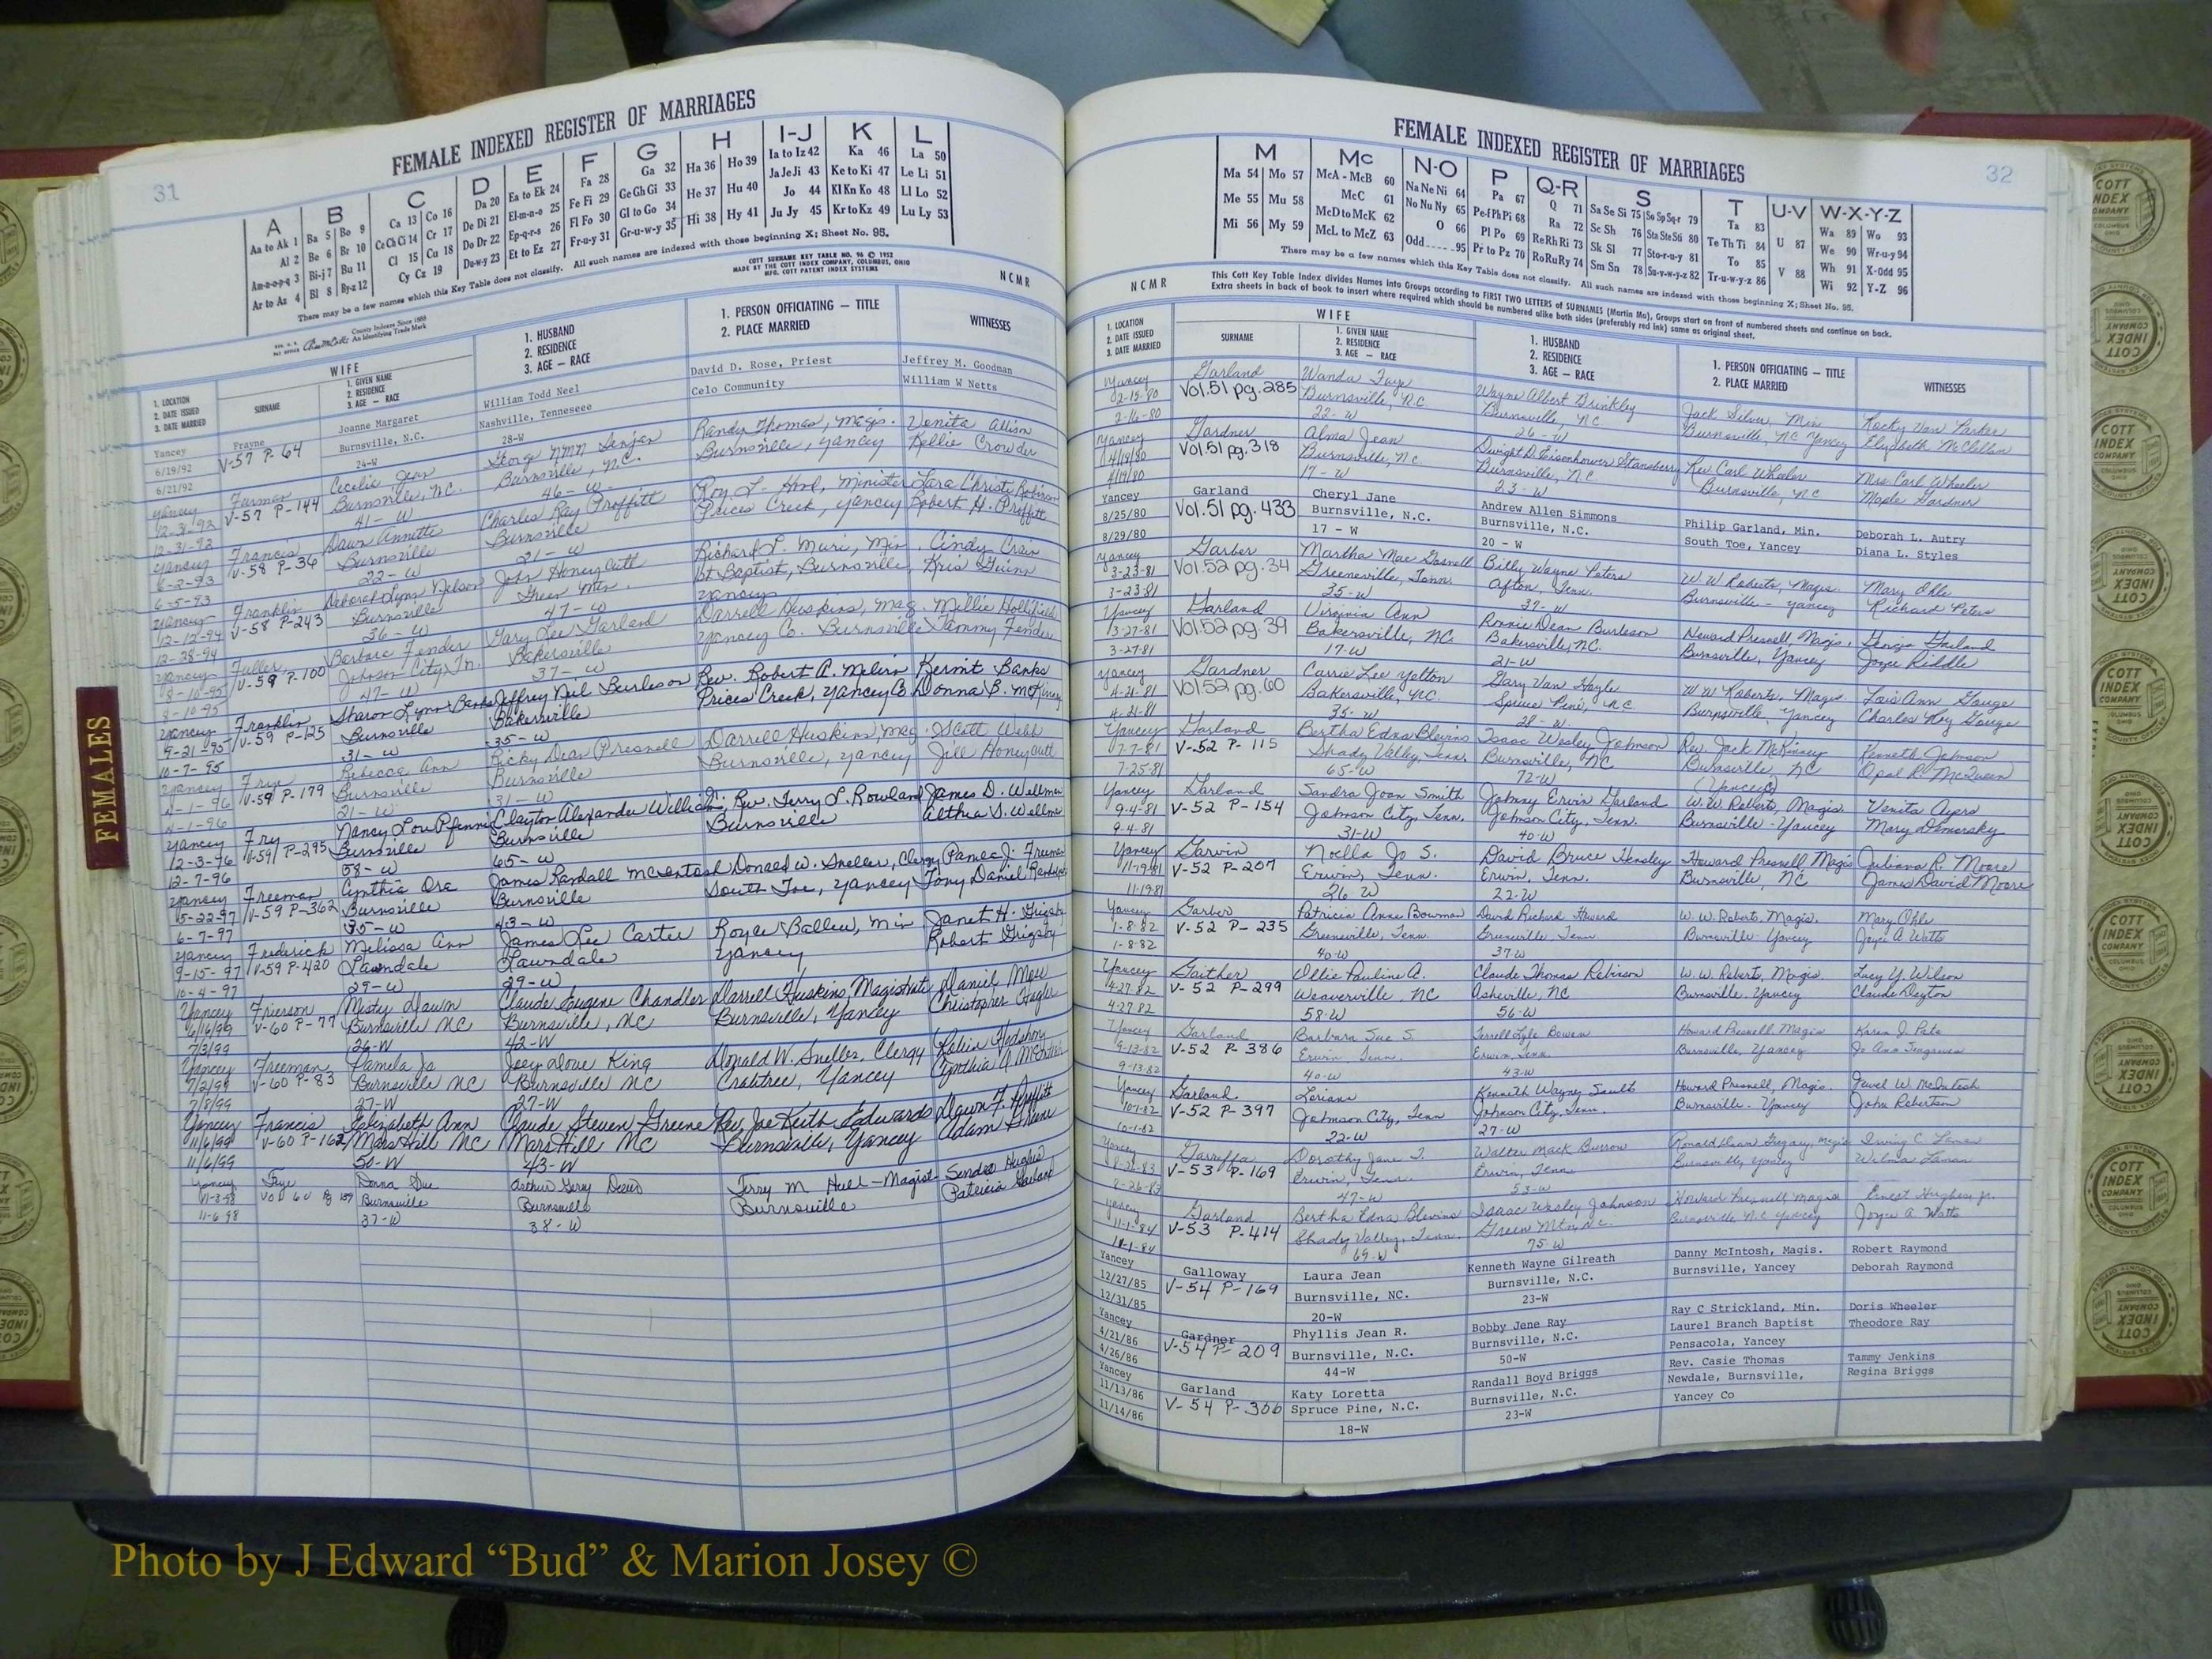 FEMALE INDEXED REGISTER OF MARRIAGES
31
A
Aa to Ak 1
Al 2
Am-n-o-p-q 3
Ar to Az 4
B
Ba 5 Bo 9
Be 6 Br 10
Bi-j 7 Bu 11
Bl 8 By-z 12
C
Ca 13 Co 16
Ce Ch Ci 14 Cr 17
Cl 15 Cu 18
Cy Cz 19
D
Da 20
De Di 21
Do Dr 22
Du-w-y 23
E
Ea to Ek 24
El-m-n-o 25
Ep-q-r-s 26
Et to Ez 27
F
Fa 28
Fe Fi 29
Fl Fo 30
Fr-u-y 31
G
Ga 32
Ge Gh Gi 33
Gl to Go 34
Gr-u-w-y 35
H
Ha 36 Ho 39
He 37 Hu 40
Hi 38 Hy 41
I-J
Ia to Iz 42
Ja Je Ji 43
Jo 44
Ju Jy 45
K
Ka 46
Ke to Ki 47
Kl Kn Ko 48
Kr to Kz 49
L
La 50
Le Li 51
Ll Lo 52
Lu Ly 53
There may be a few names which this Key Table does not classify. All such names are indexed with those beginning X; Sheet No. 95.
COTT SURNAME KEY TABLE NO. 96 © 1952
MADE BY THE COTT INDEX COMPANY, COLUMBUS, OHIO
MFG. COTT PATENT INDEX SYSTEMS
NCMR
County Indexes Since 1888
An Identifying Trade Mark
1. LOCATION
2. DATE ISSUED
3. DATE MARRIED
WIFE
SURNAME
1. GIVEN NAME
2. RESIDENCE
3. AGE — RACE
1. HUSBAND
2. RESIDENCE
3. AGE — RACE
1. PERSON OFFICIATING — TITLE
2. PLACE MARRIED
WITNESSES
Yancey Frayne Joanne Margaret William Todd Neel David D. Rose, Priest Jeffrey M. Goodman
6/19/92 V-57 P-64 Burnsville, N.C. Nashville, Tenneseee Celo Community William W Netts
6/21/92 24-W 28-W
Yancey Furman Cecelia Jean George NMN Randy Thomas, Magis. Venita Allison
12-31-92 V-57 P-144 Burnsville, N.C. Burnsville, N.C. Burnsville, Yancey Kellie Crowder
12-31-92 41-W 46-W
Yancey Francis Dawn Annette Charles Ray Proffitt Roy L. Minister Lara Christi Robinson
6-2-93 V-58 P-36 Burnsville Burnsville Prices Creek, Yancey Robert H. Proffitt
6-5-93 22-W 21-W
Yancey Franklin Deborah Lynn Nelson John Honeycutt Richard L. Muri, Min. Cindy Crain
12-12-94 V-58 P-243 Burnsville Green Mtn. 1st Baptist, Burnsville, Kris Guinn
12-28-94 36-W 47-W Yancey
Yancey Fuller Barbara Fender Gary Lee Garland Darrell Huskins, Mag. Millie Hollifield
8-10-95 V-59 P-100 Johnson City, Tn. Bakersville Yancey Co. Burnsville Tammy Fender
8-10-95 47-W 37-W
Yancey Franklin Sharon Lynn Banks Jeffrey Neil Burleson Rev. Robert A. Melvin Kermit Banks
9-21-95 V-59 P-125 Burnsville Bakersville Prices Creek, Yancey Co Donna B. McKinney
10-7-95 31-W 35-W
Yancey Frye Rebecca Ann Ricky Dean Presnell Darrell Huskins, Mag. Scott Webb
4-1-96 V-59 P-179 Burnsville Burnsville Burnsville, Yancey Jill Honeycutt
4-1-96 21-W 31-W
Yancey Fry Nancy Lou Pfennig Clayton Alexander Williams, Jr. Rev. Terry L. Rowland James D. Wellman
12-3-96 V-59 P-295 Burnsville Burnsville Burnsville Althea S. Wellman
12-7-96 58-W 65-W
Yancey Freeman Cynthia Ora James Randall McIntosh Donald W. Sneller, Clergy Pamela J. Freeman
5-22-97 V-59 P-362 Burnsville Burnsville South Toe, Yancey Tony Daniel
6-7-97 35-W 43-W
Yancey Frederick Melissa Ann James Lee Carter Royce Ballew, Min Janet H. Grigsby
9-15-97 V-59 P-420 Lawndale Lawndale Yancey Robert Grigsby
10-4-97 29-W 29-W
Yancey Frierson Misty Dawn Claude Eugene Chandler Darrell Huskins, Magistrate Daniel
6/16/99 V-60 P-77 Burnsville NC Burnsville, NC Burnsville, Yancey Christopher
7/3/99 26-W 42-W
Yancey Freeman Pamela Jo Joey Love King Donald W. Sneller, Clergy Robin
7/2/99 V-60 P-83 Burnsville NC Burnsville NC Crabtree, Yancey Cynthia
7/8/99 27-W 27-W
Yancey Francis Elizabeth Ann Claude Steven Greene Rev. Joe Keith Edwards Dawn F. Proffitt
11/6/99 V-60 P-162 Mars Hill NC Mars Hill NC Burnsville, Yancey Adam Greene
11/6/99 50-W 43-W
Yancey Frye Donna Sue Arthur Gerry Davis Terry M Hull-Magist Sandra Hughes
11-3-98 Vol 60 Pg 129 Burnsville Burnsville Burnsville Patricia
11-6-98 37-W 38-W
FEMALES
FEMALE INDEXED REGISTER OF MARRIAGES
32
M
Ma 54 Mo 57
Me 55 Mu 58
Mi 56 My 59
Mc
McA - McB 60
McC 61
McD to McK 62
McL to McZ 63
N-O
Na Ne Ni 64
No Nu Ny 65
O 66
Odd 95
P
Pa 67
Pe-f Ph Pi 68
Pl Po 69
Pr to Pz 70
Q-R
Q 71
Ra 72
Re Rh Ri 73
Ro Ru Ry 74
S
Sa Se Si 75 So Sp Sq-r 79
Sc Sh 76 Sta Ste Sti 80
Sk Sl 77 Sto-r-u-y 81
Sm Sn 78 Su-v-w-y-z 82
T
Ta 83
Te Th Ti 84
To 85
Tr-u-w-y-z 86
U-V
U 87
V 88
W-X-Y-Z
Wa 89 Wo 93
We 90 Wr-u-y 94
Wh 91 X-Odd 95
Wi 92 Y-Z 96
There may be a few names which this Key Table does not classify. All such names are indexed with those beginning X; Sheet No. 95.
NCMR
This Cott Key Table Index divides Names into Groups according to FIRST TWO LETTERS of SURNAMES (Martin Ma), Groups start on front of numbered sheets and continue on back.
Extra sheets in back of book to insert where required which should be numbered alike both sides (preferably red ink) same as original sheet.
1. LOCATION
2. DATE ISSUED
3. DATE MARRIED
WIFE
SURNAME
1. GIVEN NAME
2. RESIDENCE
3. AGE — RACE
1. HUSBAND
2. RESIDENCE
3. AGE — RACE
1. PERSON OFFICIATING — TITLE
2. PLACE MARRIED
WITNESSES
Yancey Garland Wanda Faye Wayne Albert Brinkley Jack Silver, Min Rocky Van Parker
2-15-80 Vol.51 pg.285 Burnsville, NC Burnsville, NC Burnsville, NC Yancey Elizabeth McClellan
2-16-80 22-W 26-W
Yancey Gardner Alma Jean Dwight D. Eisenhower Stansberry Rev. Carl Wheeler Mrs. Carl Wheeler
4/18/80 Vol.51 pg.318 Burnsville, NC. Burnsville, NC Burnsville, NC Maple Gardner
4/19/80 17-W 23-W
Yancey Garland Cheryl Jane Andrew Allen Simmons Philip Garland, Min. Deborah L. Autry
8/25/80 Vol.51 pg.433 Burnsville, N.C. Burnsville, N.C. South Toe, Yancey Diana L. Styles
8/29/80 17 - W 20 - W
Yancey Garber Martha Mae Gosnell Billy Wayne Peters W W Roberts, Magis. Mary Ohle
3-23-81 Vol.52 pg.34 Greeneville, Tenn. Afton, Tenn. Burnsville - Yancey Richard Peters
3-23-81 35-W 37-W
Yancey Garland Virginia Ann Ronnie Dean Burleson Howard Presnell, Magis. Georgia Garland
3-27-81 Vol.52 pg.39 Bakersville, NC. Bakersville, NC. Burnsville, Yancey Joyce Riddle
3-27-81 17-W 21-W
Yancey Gardner Carrie Lee Yelton Gary Van Hoyle W W Roberts, Magis. Lois Ann Gouge
4-21-81 Vol.52 pg.60 Bakersville, NC. Spruce Pine, NC. Burnsville, Yancey Charles Ney Gouge
4-21-81 35-W 28-W
Yancey Garland Bertha Edna Blevins Isaac Wesley Johnson Rev. Jack McKinney Kenneth Johnson
7-7-81 V-52 P-115 Shady Valley, Tenn. Burnsville, NC Burnsville, NC Opal R. McQueen
7-25-81 65-W 72-W (Yancey)
Yancey Garland Sandra Joan Smith Johnny Ervin Garland W.W. Roberts, Magis. Venita Ayers
9-4-81 V-52 P-154 Johnson City, Tenn. Johnson City, Tenn. Burnsville - Yancey Mary Demorsky
9-4-81 31-W 40-W
Yancey Garvin Noella Jo S. David Bruce Hensley Howard Presnell Magis Juliana R. Moore
11-19-81 V-52 P-207 Erwin, Tenn. Erwin, Tenn. Burnsville, NC James David Moore
11-19-81 26 W 22-W
Yancey Garber Patricia Anne Bowman David Richard Howard W. W. Roberts, Magis. Mary Ohle
1-8-82 V-52 P-235 Greeneville, Tenn. Greeneville, Tenn Burnsville - Yancey Joyce A Watts
1-8-82 40-W 37W
Yancey Gaither Ollie Pauline A. Claude Thomas Robinson W. W. Roberts, Magis. Lucy Y. Wilson
4-27-82 V-52 P-299 Weaverville, NC Asheville, NC Burnsville - Yancey Claude Deyton
4-27-82 58-W 56-W
Yancey Garland Barbara Sue S. Terrell Lyle Bowen Howard Presnell, Magis Karen J. Pate
9-13-82 V-52 P-386 Erwin, Tenn. Erwin, Tenn. Burnsville, Yancey Jo Ann Seagraves
9-13-82 40-W 43-W
Yancey Garland Loriann Kenneth Wayne Saults Howard Presnell, Magis. Jewel W. McIntosh
10-1-82 V-52 P-397 Johnson City, Tenn Johnson City, Tenn. Burnsville - Yancey John Robertson
10-1-82 22-W 27-W
Yancey Dorothy Jane T. Walter Mack Burrow Ronald Gregory, Magis Irving C.
8-26-83 V-53 P-169 Erwin, Tenn. Erwin, Tenn Burnsville, Yancey Wilma
8-26-83 47-W 53-W
Yancey Garland Bertha Edna Blevins Isaac Wesley Johnson Howard Presnell Magis Ernest Hughes Jr.
11-1-84 V-53 P-414 Shady Valley, Tenn. Green Mtn, N.C. Burnsville N.C. Yancey Joyce A Watts
11-1-84 69-W 75-W
Yancey Galloway Laura Jean Kenneth Wayne Gilreath Danny McIntosh, Magis. Robert Raymond
12/27/85 V-54 P-169 Burnsville, NC. Burnsville, N.C. Burnsville, Yancey Deborah Raymond
12/31/85 20-W 23-W
Yancey Gardner Phyllis Jean R. Bobby Jene Ray Ray C Strickland, Min. Doris Wheeler
4/21/86 V-54 P-209 Burnsville, N.C. Burnsville, N.C. Laurel Branch Baptist Theodore Ray
4/26/86 44-W 50-W Pensacola, Yancey
Yancey Garland Katy Loretta Randall Boyd Briggs Rev. Casie Thomas Tammy Jenkins
11/13/86 V-54 P-306 Spruce Pine, N.C. Burnsville, N.C. Newdale, Burnsville, Regina Briggs
11/14/86 18-W 23-W Yancey Co
COTT
INDEX
COMPANY
COLUMBUS
OHIO
Photo by J Edward “Bud” & Marion Josey ©